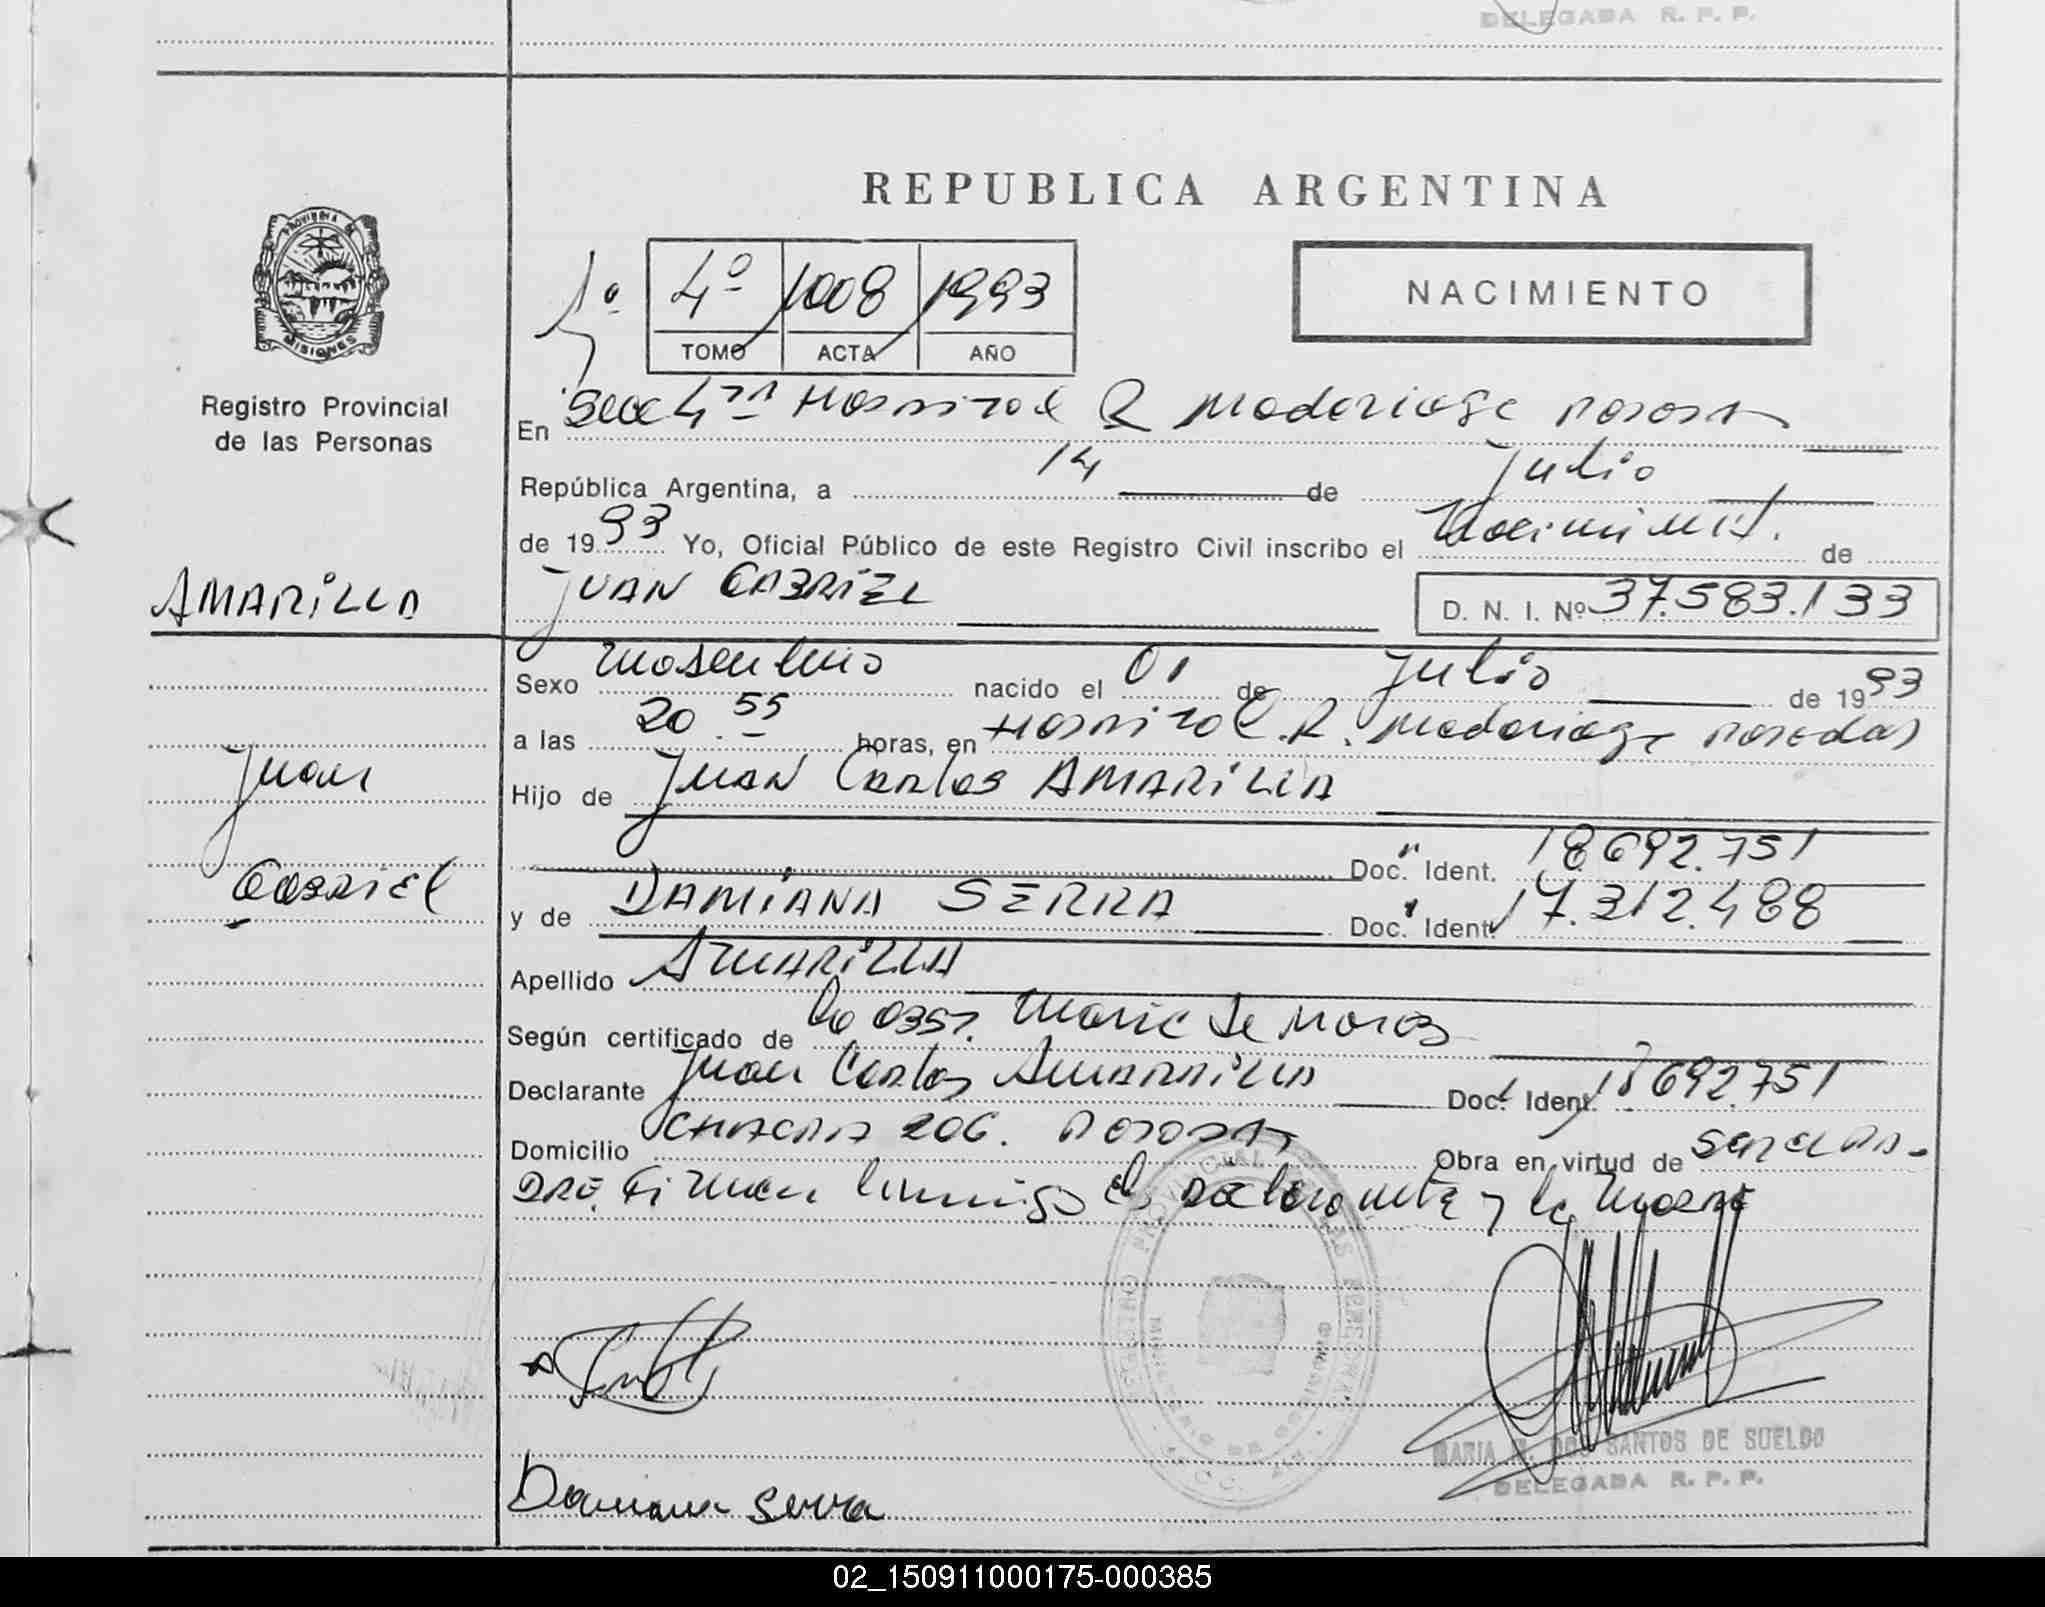 DELEGADA R. P. P.
REPUBLICA ARGENTINA
PROVINCIA DE
MISIONES
1º 4º 1008 1993
TOMO ACTA AÑO
NACIMIENTO
Registro Provincial
de las Personas
En Secc 4ta Hospital R Madariaga Posadas
República Argentina, a 14 de Julio
de 1993 Yo, Oficial Público de este Registro Civil inscribo el Nacimiento. de
AMARILLA
JUAN GABRIEL D. N. I. Nº 37.583.133
Sexo Masculino nacido el 01 de Julio de 1993
a las 20.55 horas, en Hospital. R. Madariaga Posadas
Juan
Hijo de JUAN Carlos AMARILLA
Doc. Ident. 18.692.751
Gabriel
y de DAMIANA SERRA Doc. Ident. 17.312.488
Apellido AMARILLA
Según certificado de la Obst. Maria de
Declarante Juan Carlos Amarilla Doc. Ident. 18.692.751
Domicilio CHACRA 206. Posadas Obra en virtud de ser el pa-
dre. Firman conmigo el declarante y la madre
REGISTRO PROVINCIAL DE LAS PERSONAS
MINISTERIO DE GOBIERNO
MARIA R. DOS SANTOS DE SUELDO
DELEGADA R. P. P.
Damiana Serra
02_150911000175-000385